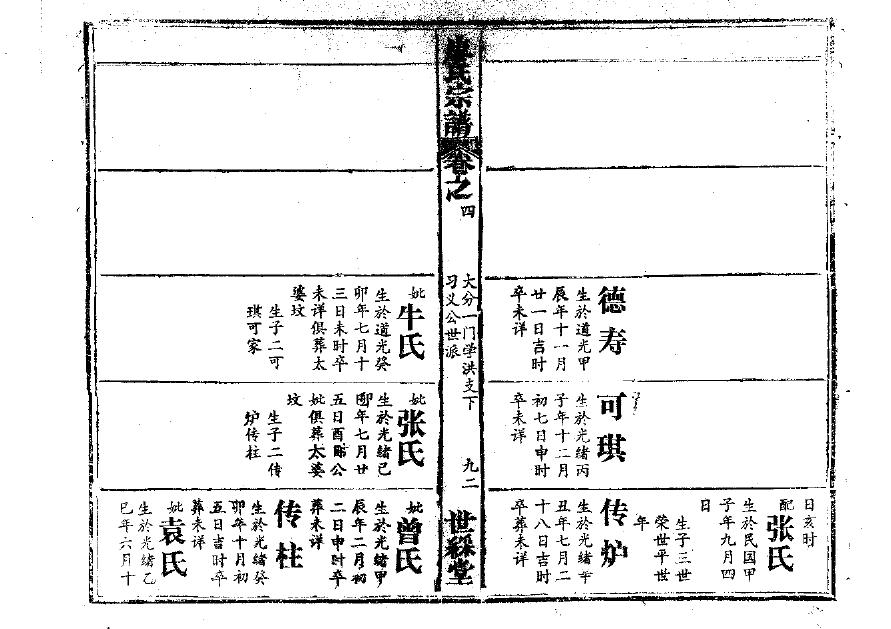 氏宗譜
卷之
四
大分一门学洪支下
习义公世派
九二
世綵堂
德寿
生於道光甲
辰年十一月
廿一日吉时
卒未详
妣
牛氏
生於道光癸
卯年七月十
三日未时卒
未详俱葬太
婆坟
生子二可
琪可家
可琪
生於光绪丙
子年十二月
初七日申时
卒未详
妣
张氏
生於光绪己
卯年七月廿
五日酉时公
妣俱葬太婆
坟
生子二传
炉传柱
日亥时
配
张氏
生於民国甲
子年九月四
日
生子三世
荣世平世
年
传炉
生於光绪辛
丑年七月二
十八日吉时
卒葬未详
妣
曾氏
生於光绪甲
辰年二月初
二日申时卒
葬未详
传柱
生於光绪癸
卯年十月初
五日吉时卒
葬未详
妣
袁氏
生於光绪乙
巳年六月十